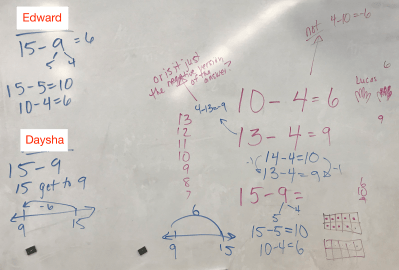 Edward
15-9=6
5 4
15-5=10
10-4=6
Daysha
15-9
15 get to 9
-6
9 15
or is it just
the negative version
of the answer?
13
12
11
10
9
8
7
6
9 15
not 4-10=-6
10-4=6
4-13=-9
13-4=9
-1 14-4=10
13-4=9 -1
15-9=
5 4
15-5=10
10-4=6
Lucas
6
9
10
9